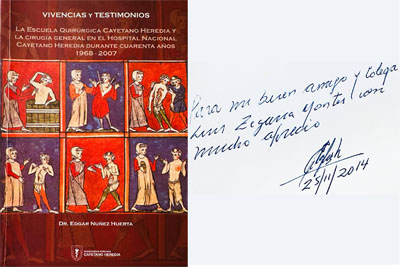 VIVENCIAS Y TESTIMONIOS
LA ESCUELA QUIRÚRGICA CAYETANO HEREDIA Y
LA CIRUGÍA GENERAL EN EL HOSPITAL NACIONAL
CAYETANO HEREDIA DURANTE CUARENTA AÑOS
1968 - 2007
DR. EDGAR NUÑEZ HUERTA
CAYETANO HEREDIA
Para mi buen amigo y Colega
Luis Zegarra Montes con
mucho aprecio
25/11/2014